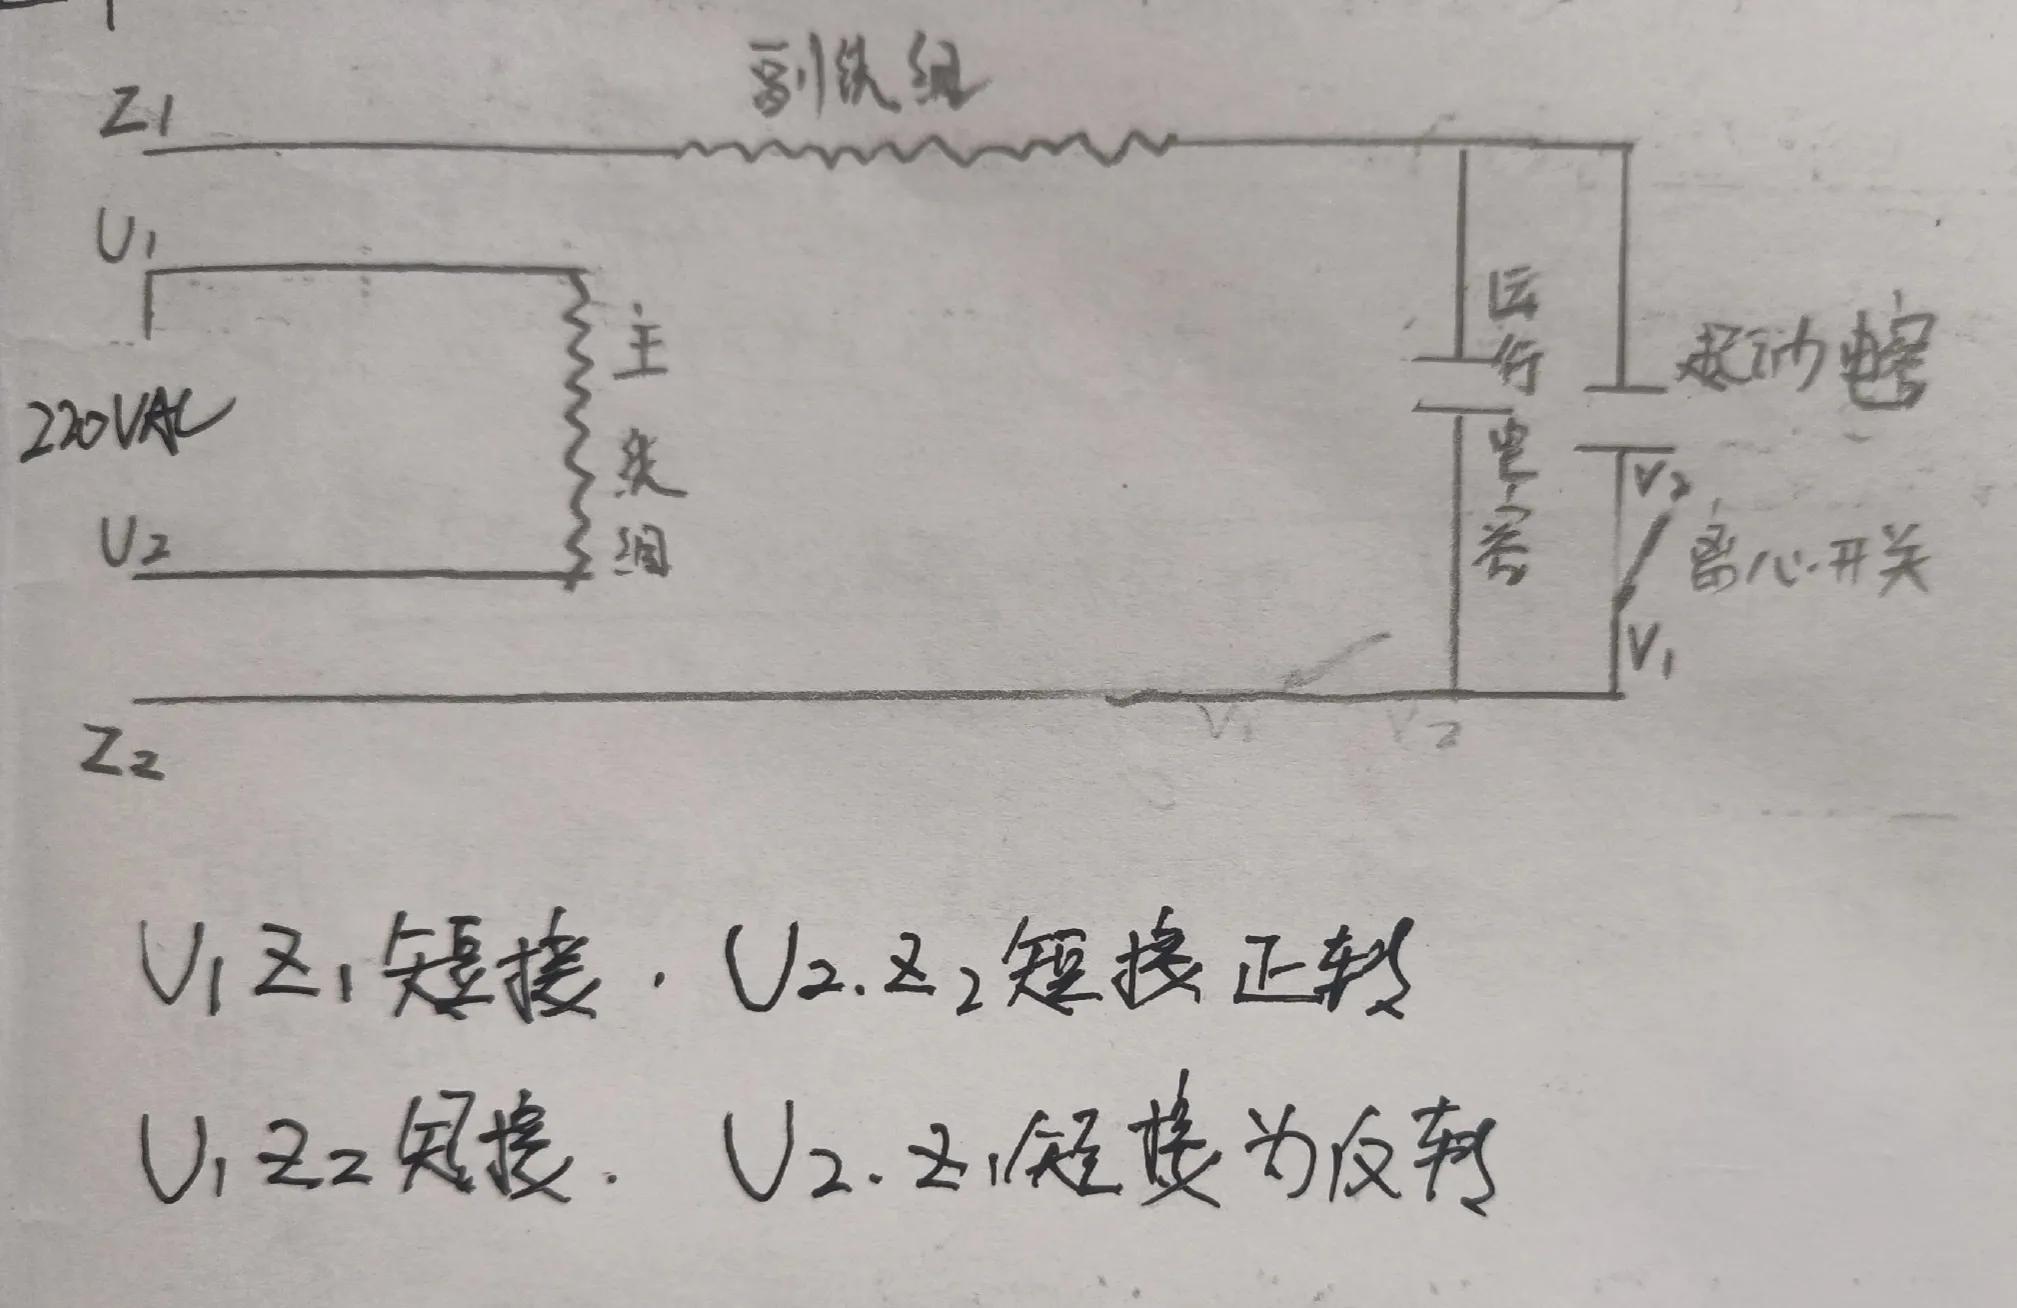 副绕组
Z1
U1
主绕组
220VAC
U2
运行电容
起动电容
V2
离心开关
V1
V1 V2
Z2
U1 Z1短接. U2.Z2短接正转
U1 Z2短接. U2.Z1短接为反转